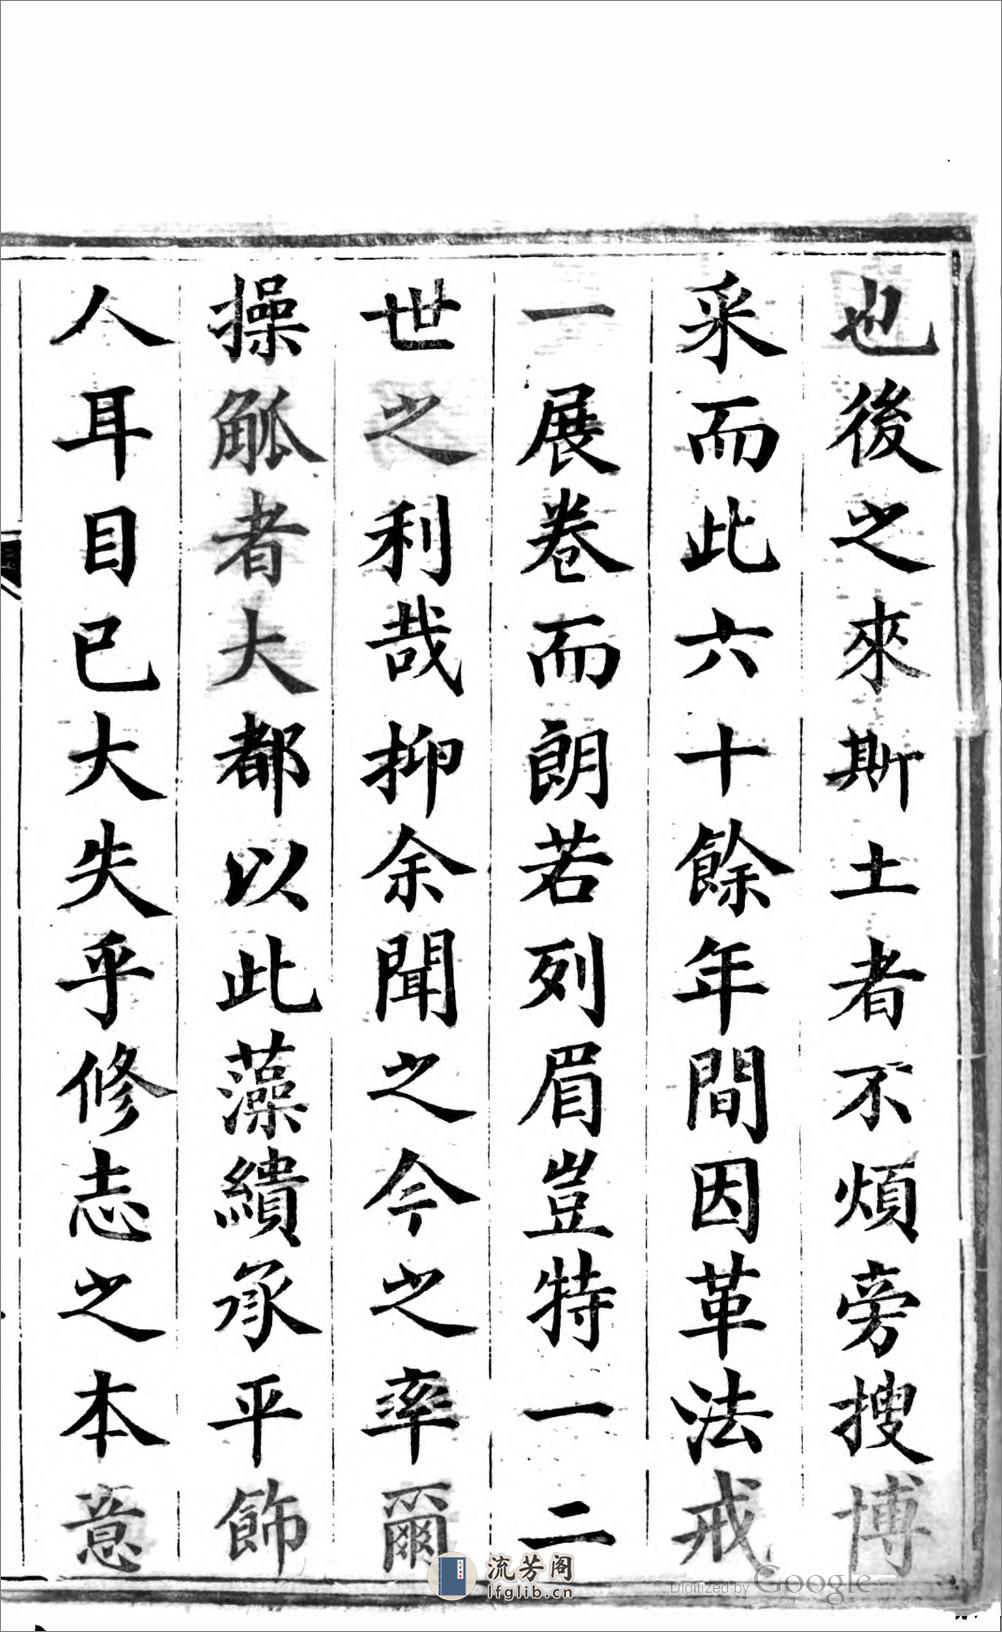 也後之來斯土者不煩旁搜博
采而此六十餘年間因革法戒
一展卷而朗若列眉豈特一二
世之利哉抑余聞之今之率爾
操觚者大都以此藻繢承平飾
人耳目已大失乎修志之本意
流芳阁
lfglib.cn
Digitized by Google